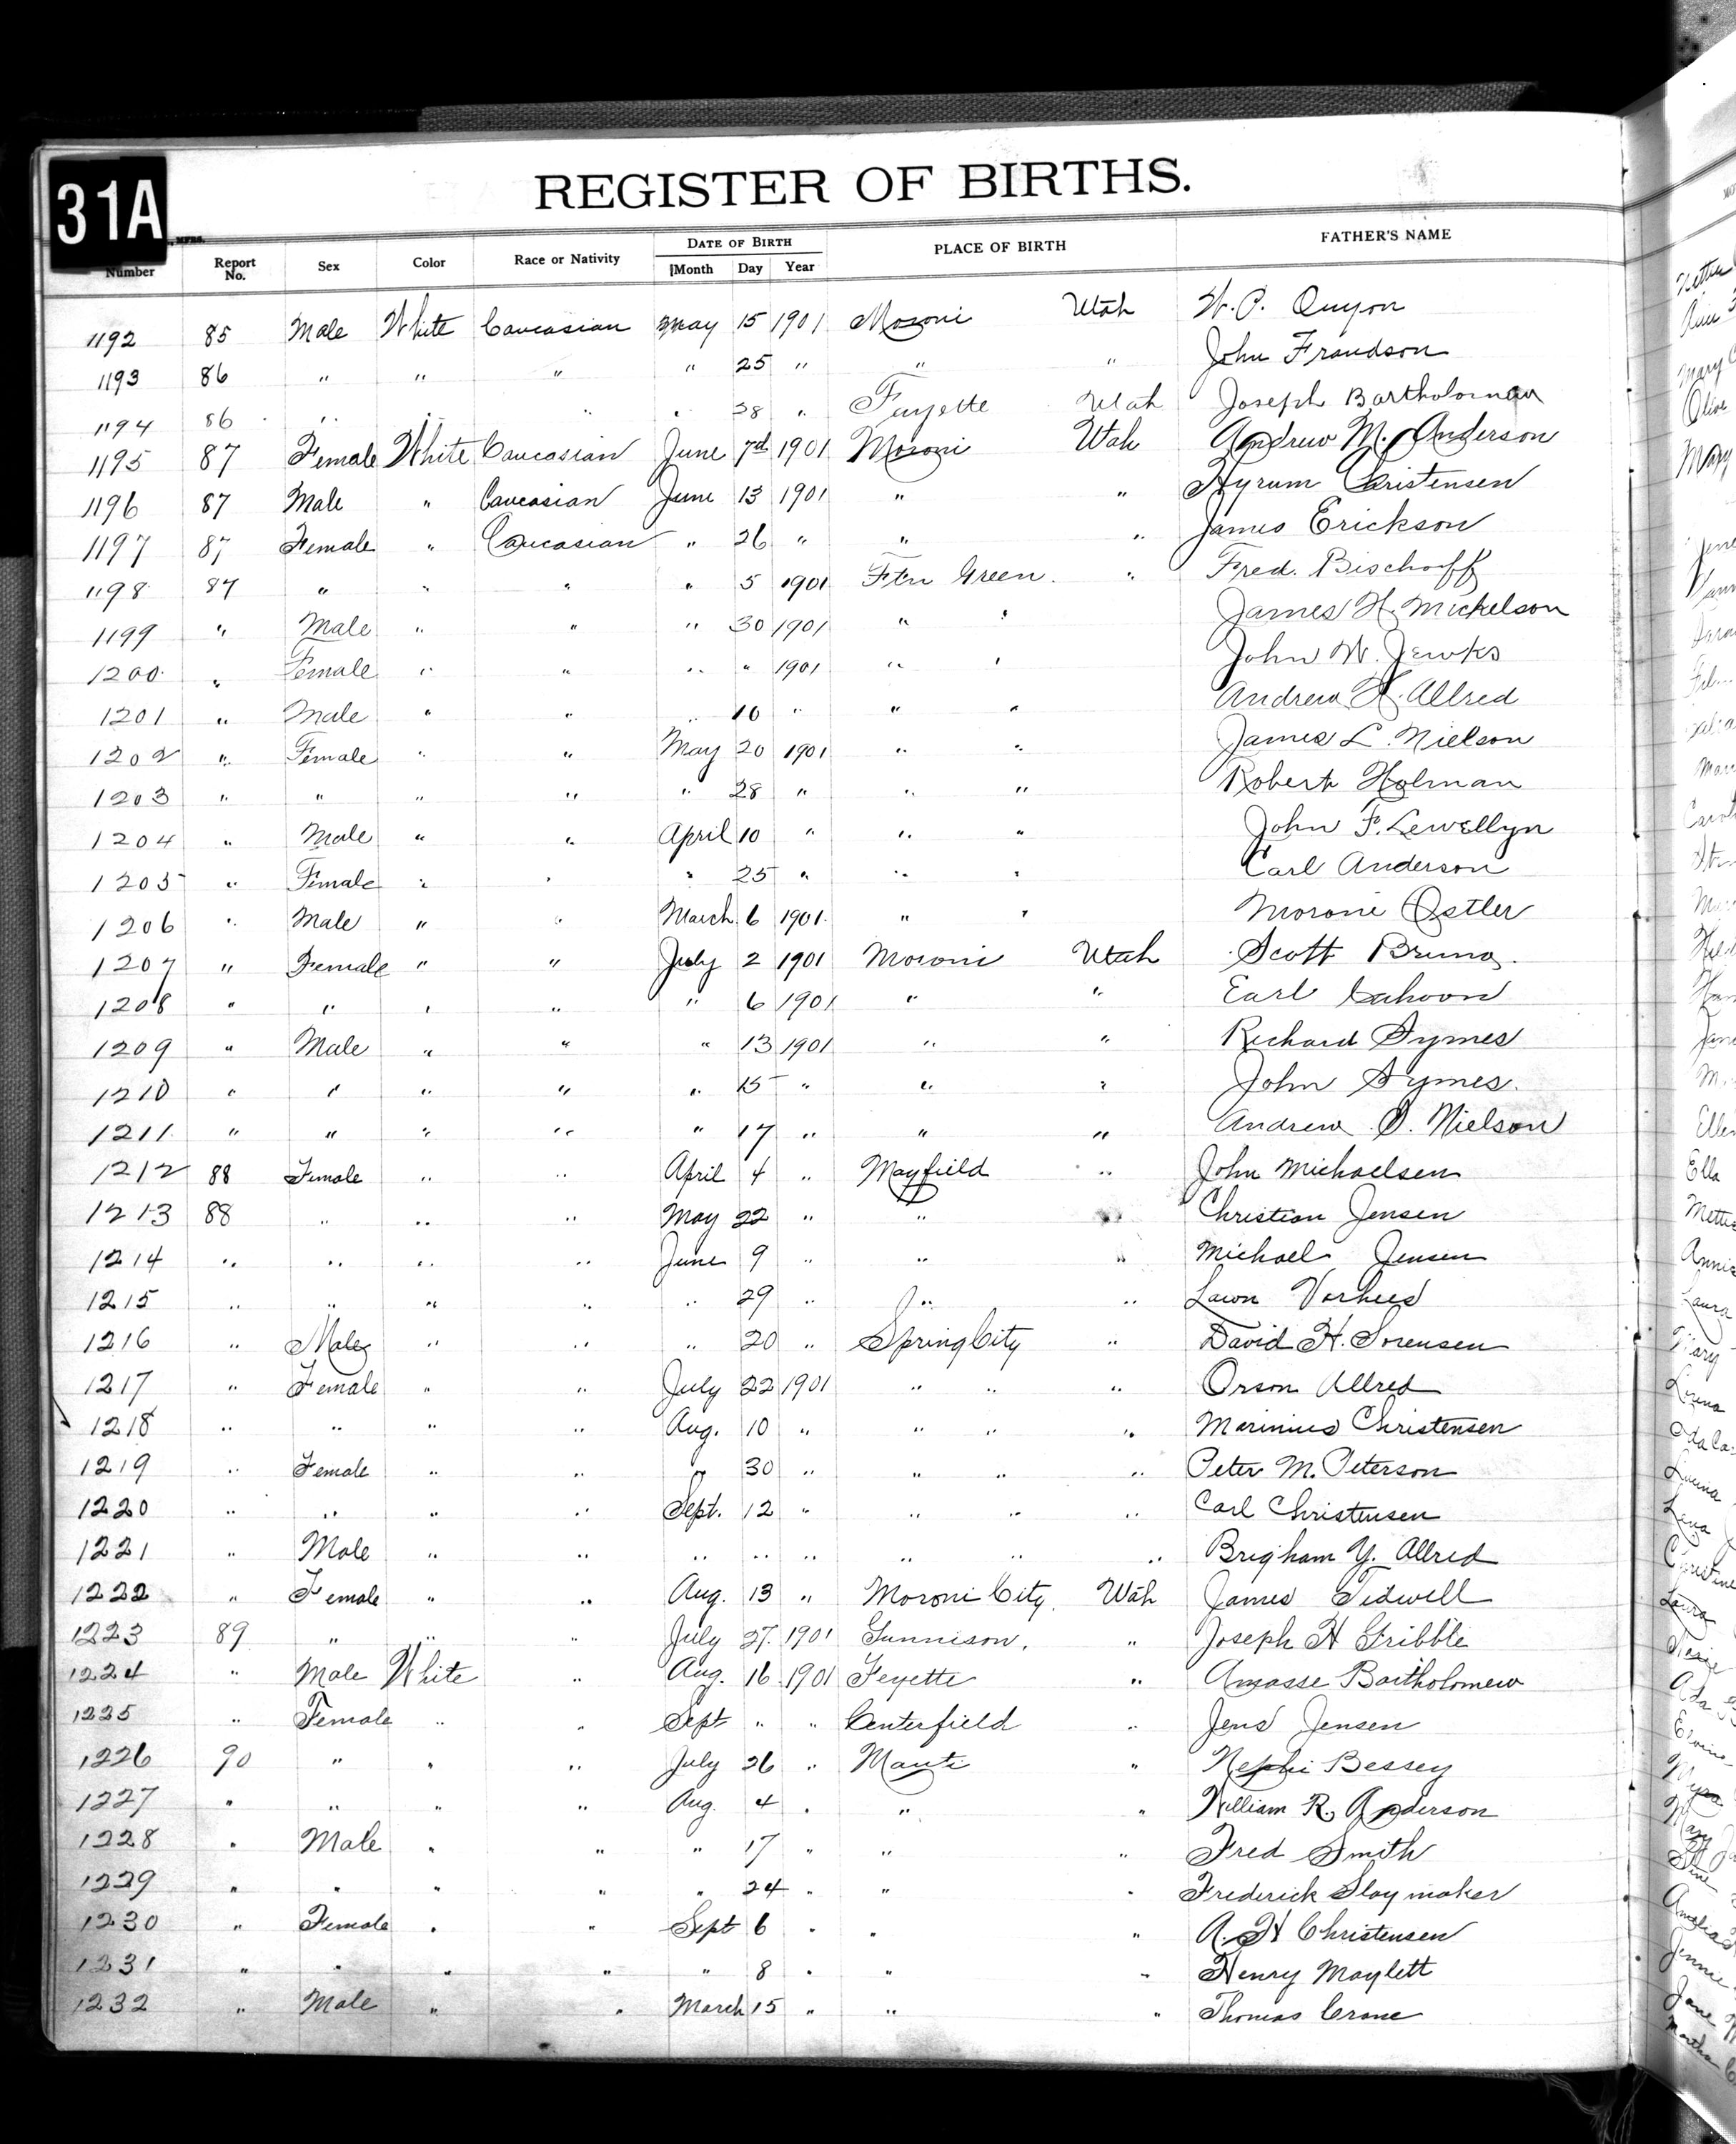 31A
REGISTER OF BIRTHS.
Number Report No. Sex Color Race or Nativity DATE OF BIRTH Month Day Year PLACE OF BIRTH FATHER'S NAME
1192 85 Male White Caucasian May 15 1901 Moroni Utah W. P.
1193 86 " " " " 25 " " " John Frandson
1194 86 " " " 28 " Fayette Utah Joseph Bartholomew
1195 87 Female White Caucasian June 7d 1901 Moroni Utah Andrew M. Anderson
1196 87 Male " Caucasian June 13 1901 " " Hyrum Christensen
1197 87 Female " Caucasian " 26 " " " James Erickson
1198 87 " " " " 5 1901 Ftn Green. " Fred. Bischoff
1199 " Male " " " 30 1901 " " James H. Mickelson
1200 " Female " " " " 1901 " " John W. Jewks
1201 " Male " " " 16 " " " Andrew H. Allred
1202 " Female " " May 20 1901 " " James L. Nielson
1203 " " " " " 28 " " " Robert Holman
1204 " Male " " April 10 " " " John F. Lewellyn
1205 " Female " " " 25 " " " Carl Anderson
1206 " Male " " March 6 1901 " " Moroni Ostler
1207 " Female " " July 2 1901 Moroni Utah Scott Bruno.
1208 " " " " " 6 1901 " " Earl Cahoon
1209 " Male " " " 13 1901 " " Richard Symes
1210 " " " " " 15 " " " John Symes.
1211 " " " " " 17 " " " Andrew Nielson
1212 88 Female " " April 4 " Mayfield " John Michaelsen
1213 88 " " " May 22 " " " Christian Jensen
1214 " " " " June 9 " " " Michael Jensen
1215 " " " " " 29 " " " Lawn Vorhees
1216 " Male " " " 20 " Spring City " David H. Sorensen
1217 " Female " " July 22 1901 " " " Orson Allred
1218 " " " " Aug. 10 " " " " Marinius Christensen
1219 " Female " " " 30 " " " " Peter M. Peterson
1220 " " " " Sept. 12 " " " " Carl Christensen
1221 " Male " " " " " " " " Brigham Y. Allred
1222 " Female " " Aug. 13 " Moroni City. Utah James Tidwell
1223 89 " " " July 27 1901 Gunnison. " Joseph H Gribble
1224 " Male White " Aug. 16 1901 Feyette " Amasse Bartholomew
1225 " Female " " Sept " " Centerfield " Jens Jensen
1226 90 " " " July 26 " Manti " Nephi Bessey
1227 " " " " Aug. 4 " " " William R. Anderson
1228 " Male " " " 17 " " " Fred Smith
1229 " " " " " 24 " " " Frederick Slaymaker
1230 " Female " " Sept 6 " " " A. H Christensen
1231 " " " " " 8 " " " Henry Maylett
1232 " Male " " March 15 " " " Thomas Crane